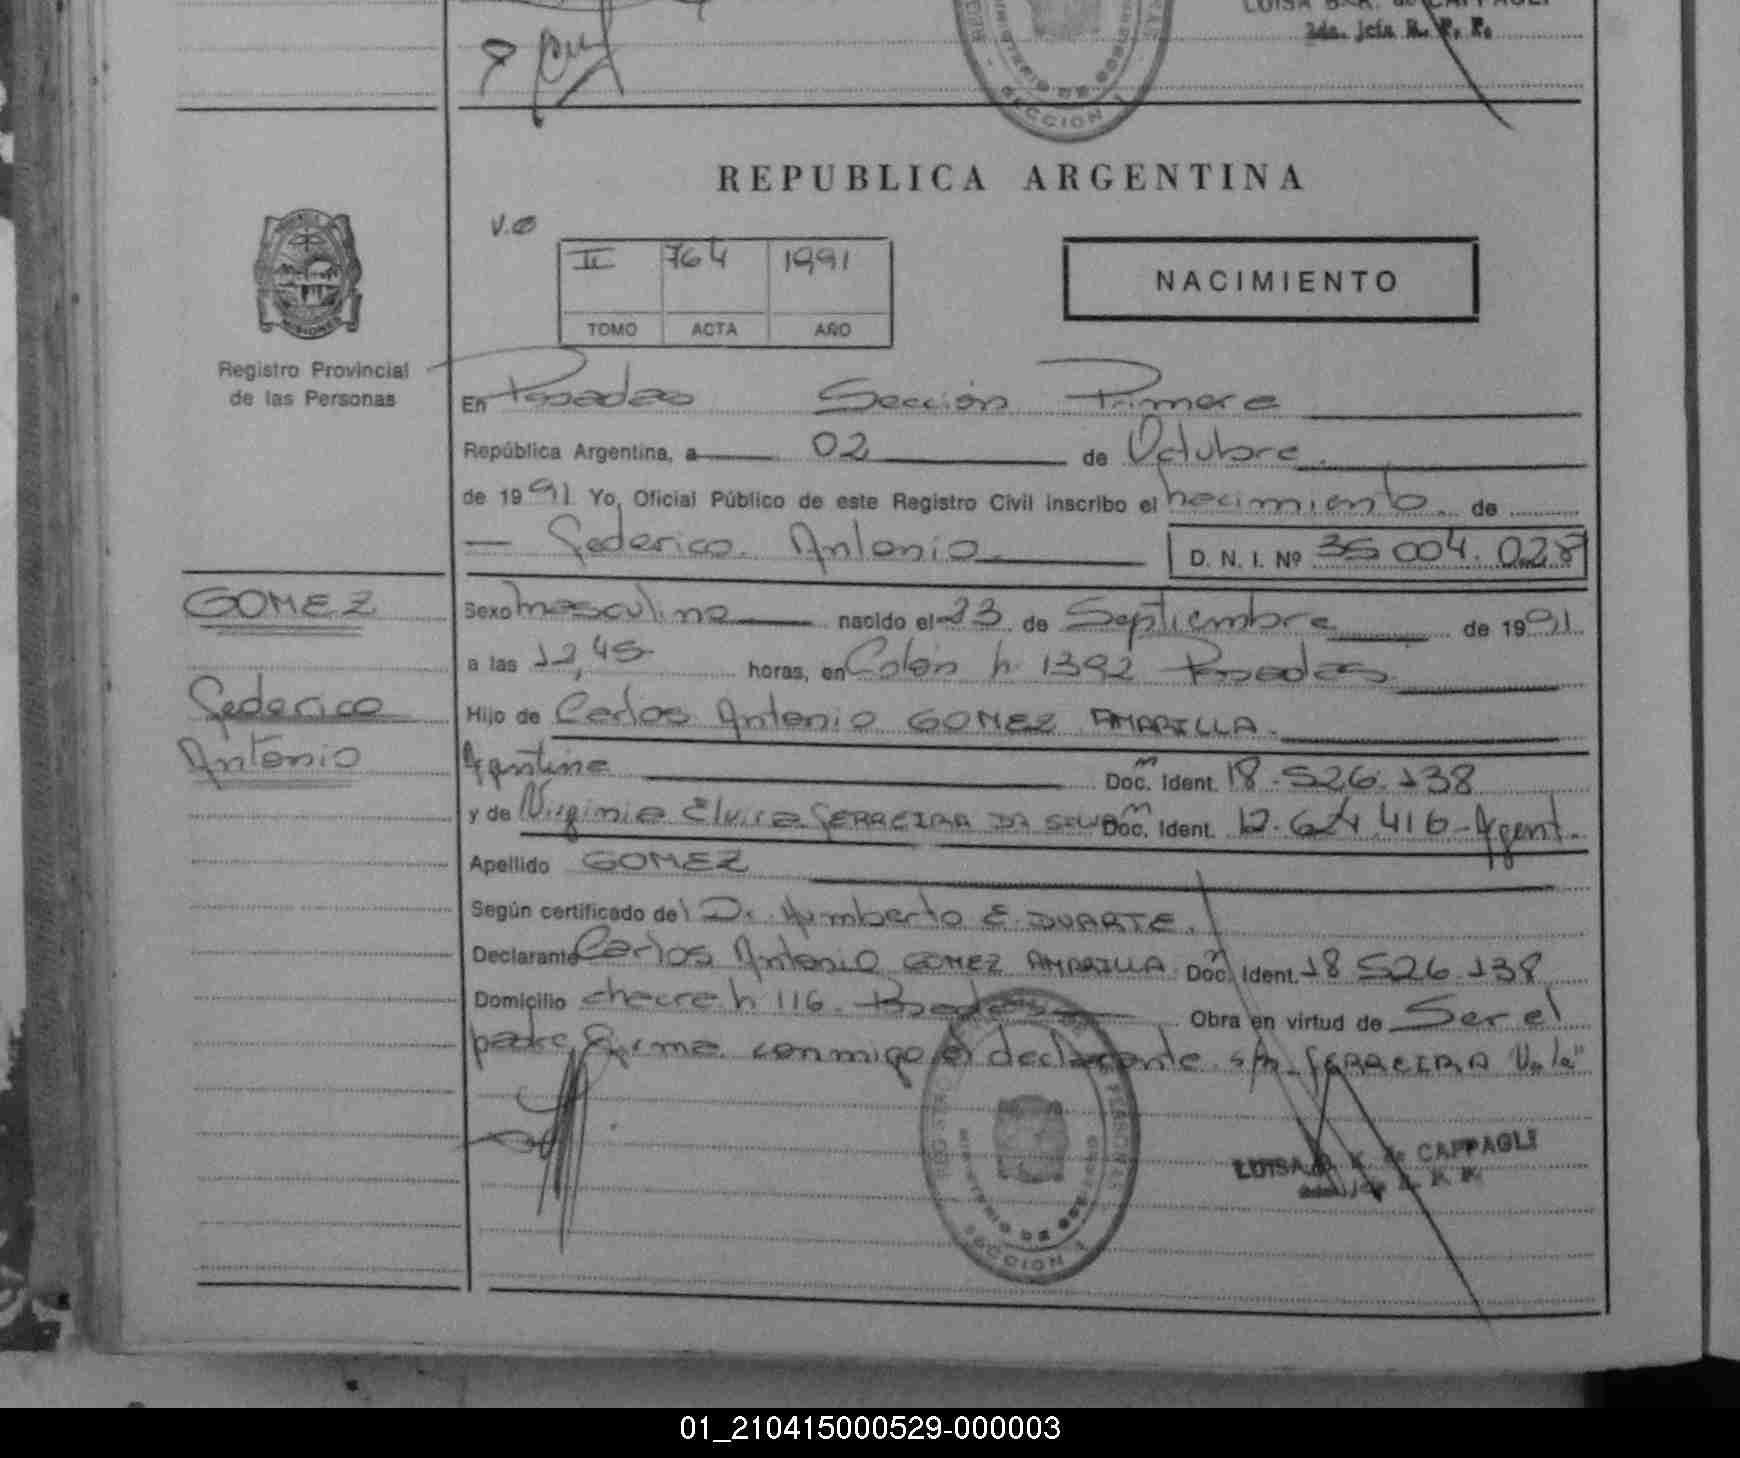 LUISA B. K. de CAPPAGLI
2da. Jefa R. P. P.
SECCION 1
REPUBLICA ARGENTINA
II 764 1991
TOMO ACTA AÑO
NACIMIENTO
MISIONES
Registro Provincial
de las Personas
En Posadas Sección Primera
República Argentina, a 02 de Octubre
de 1991 Yo, Oficial Público de este Registro Civil inscribo el nacimiento de
Federico Antonio D. N. I. Nº 35 004.028
GOMEZ
Federico
Antonio
Sexo masculino nacido el 23 de Septiembre de 1991
a las 12,45 horas, en Colón n 1392 Posadas
Hijo de Carlos Antonio GOMEZ AMARILLA
Argentino Doc. Ident. 18.526.138
y de Virginia Elvira FERREIRA DA SILVA Doc. Ident. 12.624.416 - Argent.
Apellido GOMEZ
Según certificado del Dr. Humberto E. DUARTE.
Declarante Carlos Antonio GOMEZ AMARILLA Doc. Ident. 18 526.138
Domicilio chacra n 116. Posadas Obra en virtud de Ser el
padre Firma conmigo el declarante s/r FERREIRA Vale"
LUISA B. K. de CAPPAGLI
SECCION 1
01_210415000529-000003